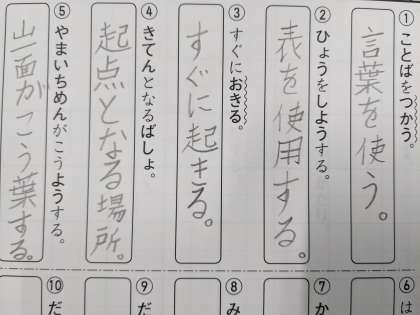 ① ことばをつかう。
言葉を使う。
② ひょうをしようする。
表を使用する。
③ すぐにおきる。
すぐに起きる。
④ きてんとなるばしょ。
起点となる場所。
⑤ やまいちめんがこうようする。
山一面がこう葉する。
⑥ は
⑦ か
⑧ み
⑨ だ
⑩ だ